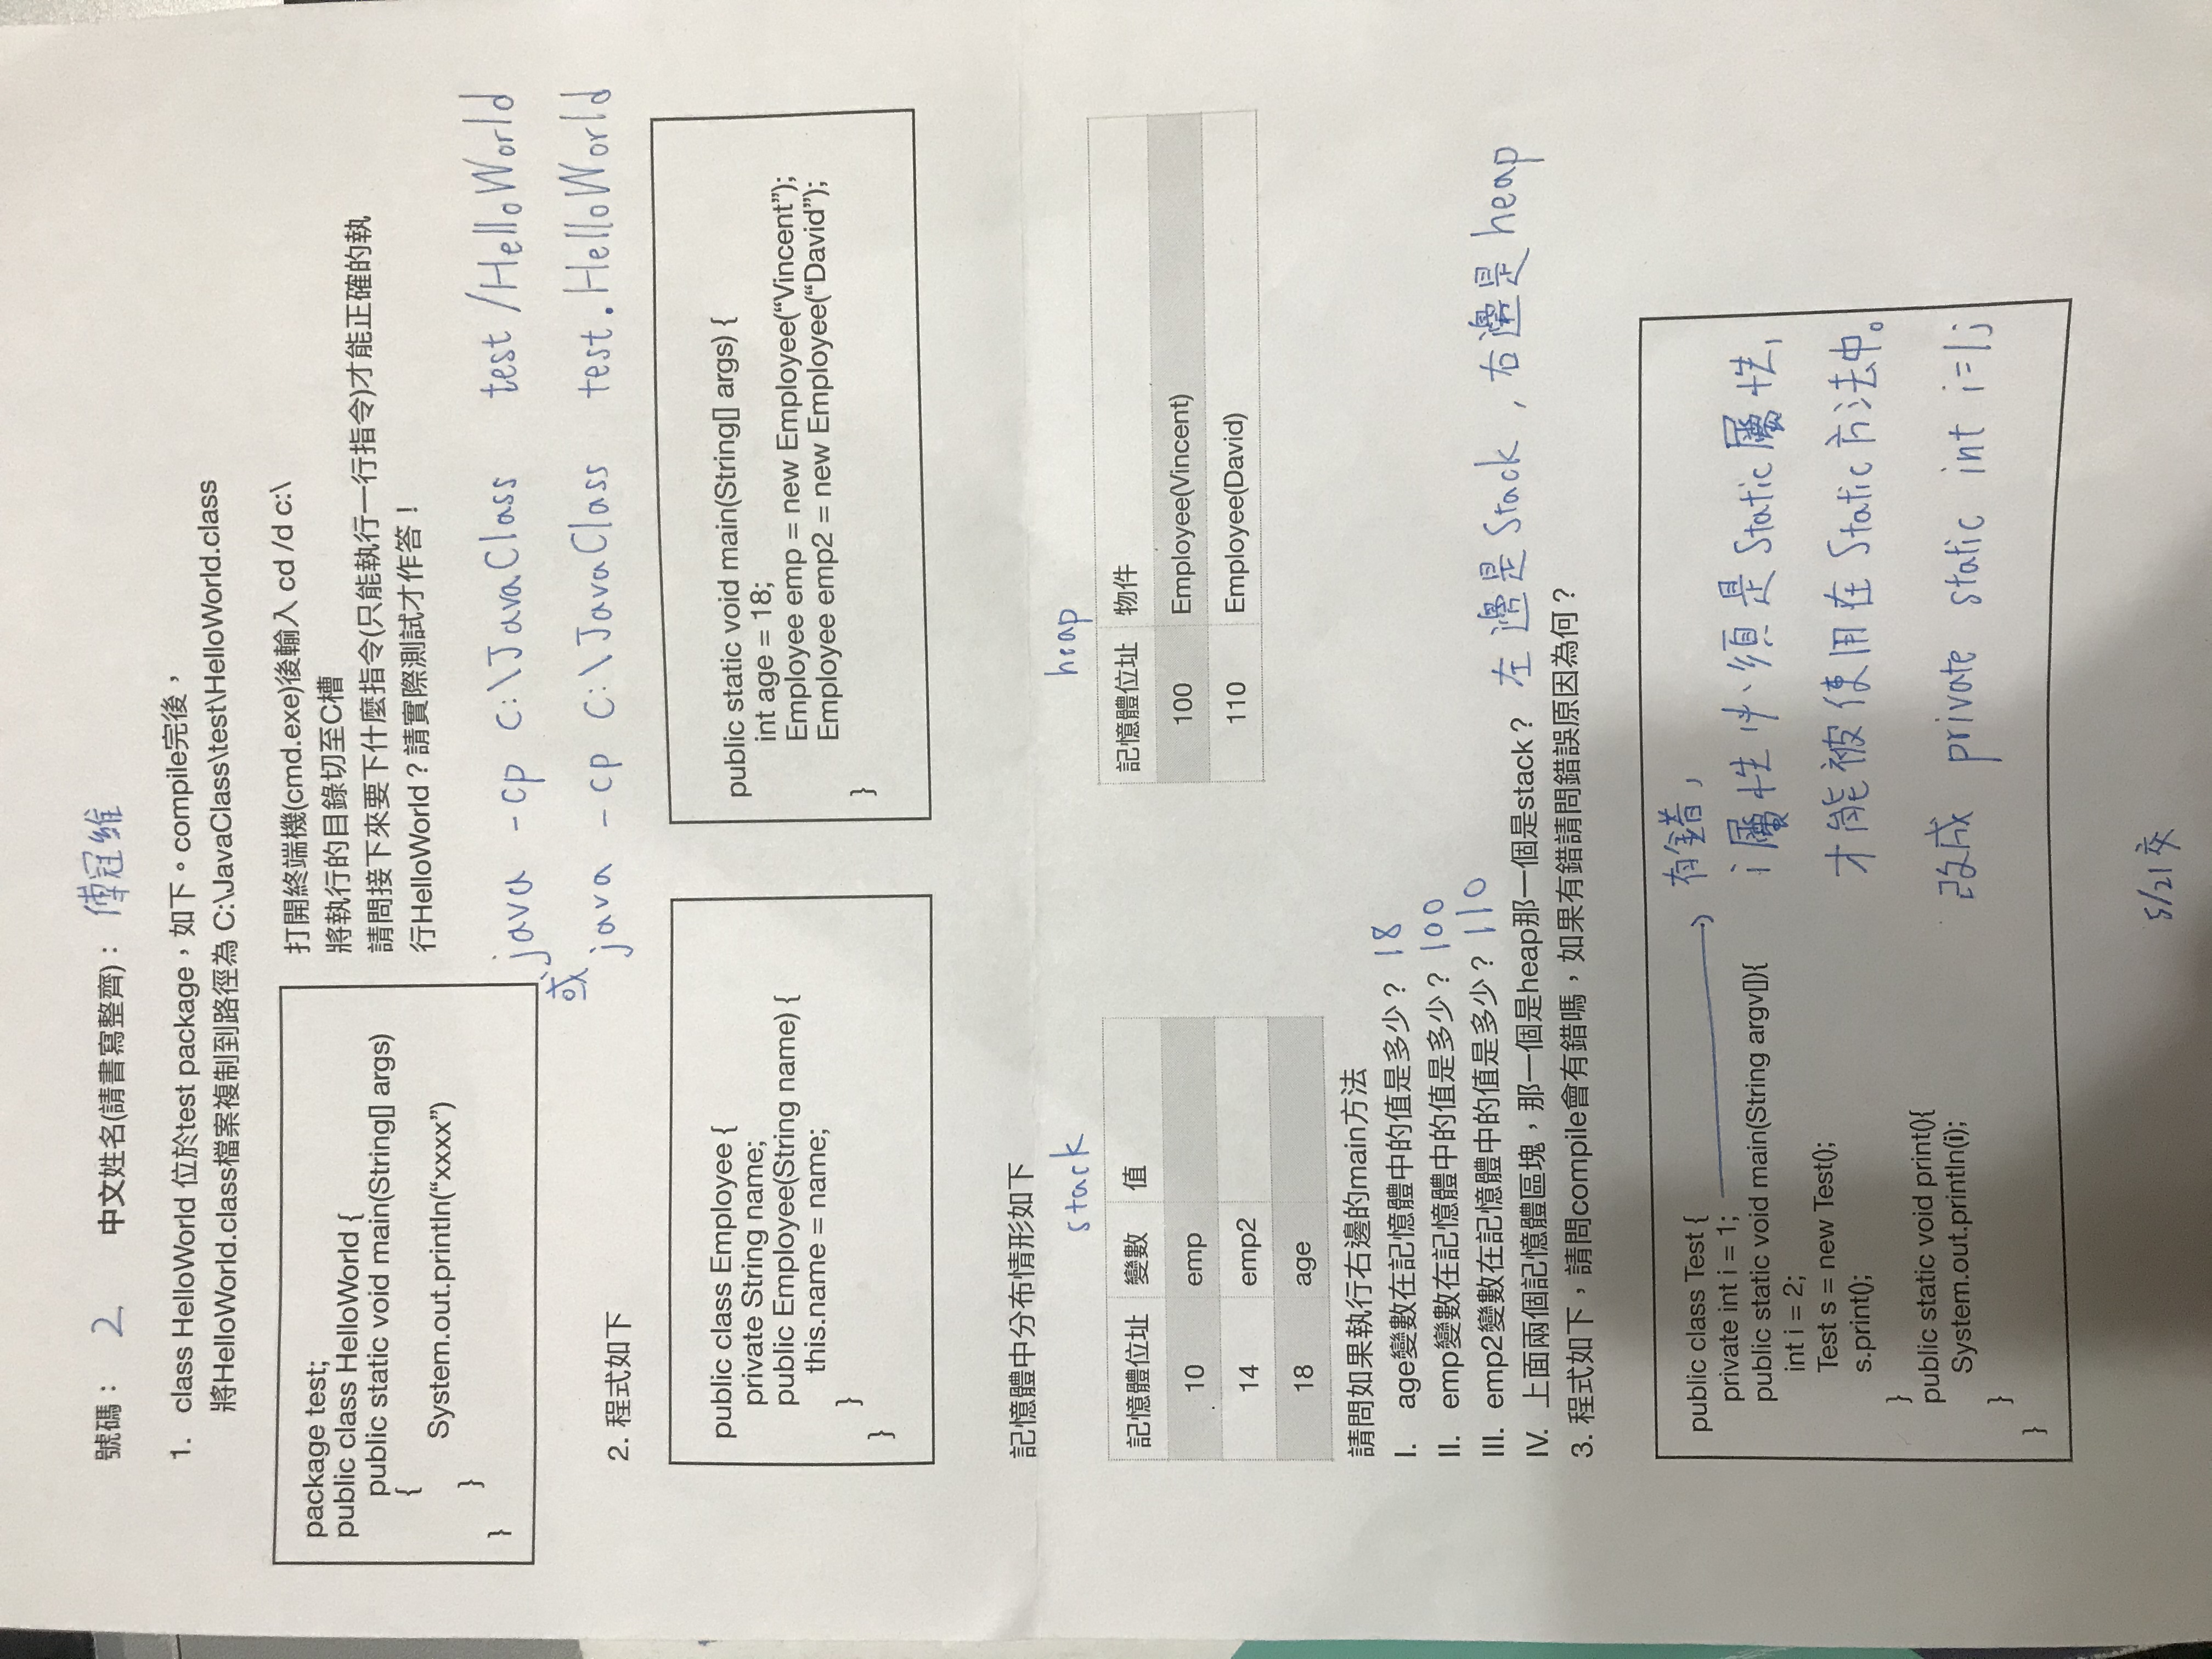 號碼： 2 中文姓名(請書寫整齊)： 傅冠維
1. class HelloWorld 位於test package，如下。compile完後，
將HelloWorld.class檔案複制到路徑為 C:\JavaClass\test\HelloWorld.class
package test;
public class HelloWorld {
public static void main(String[] args)
{
System.out.println(“xxxx”)
}
}
打開終端機(cmd.exe)後輸入 cd /d c:\
將執行的目錄切至C槽
請問接下來要下什麼指令(只能執行一行指令)才能正確的執
行HelloWorld？請實際測試才作答！
java -cp C:\JavaClass test/HelloWorld
或
java -cp C:\JavaClass test.HelloWorld
2. 程式如下
public class Employee {
private String name;
public Employee(String name) {
this.name = name;
}
}
public static void main(String[] args) {
int age = 18;
Employee emp = new Employee(“Vincent”);
Employee emp2 = new Employee(“David”);
}
記憶體中分布情形如下
stack
記憶體位址 變數 值
10 emp
14 emp2
18 age
heap
記憶體位址 物件
100 Employee(Vincent)
110 Employee(David)
請問如果執行右邊的main方法
I. age變數在記憶體中的值是多少？ 18
II. emp變數在記憶體中的值是多少？ 100
III. emp2變數在記憶體中的值是多少？ 110
IV. 上面兩個記憶體區塊，那一個是heap那一個是stack？ 左邊是Stack，右邊是heap
3. 程式如下，請問compile會有錯嗎，如果有錯請問錯誤原因為何？
public class Test {
private int i = 1;
public static void main(String argv[]){
int i = 2;
Test s = new Test();
s.print();
}
public static void print(){
System.out.println(i);
}
}
有錯，
i屬性必須是Static屬性，
才能被使用在Static方法中。
改成 private static int i=1;
5/21交